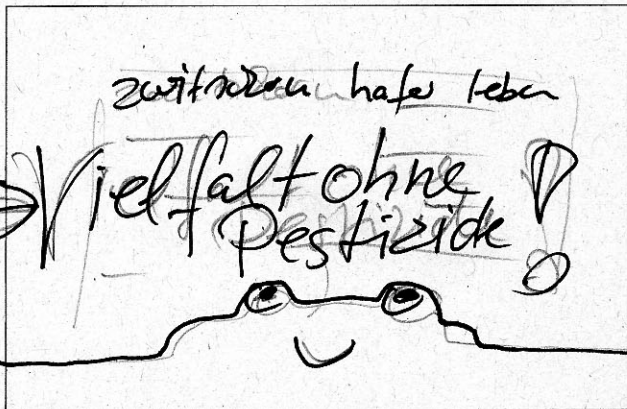 zwitschern hafer leben
Vielfalt ohne
Pestizide!